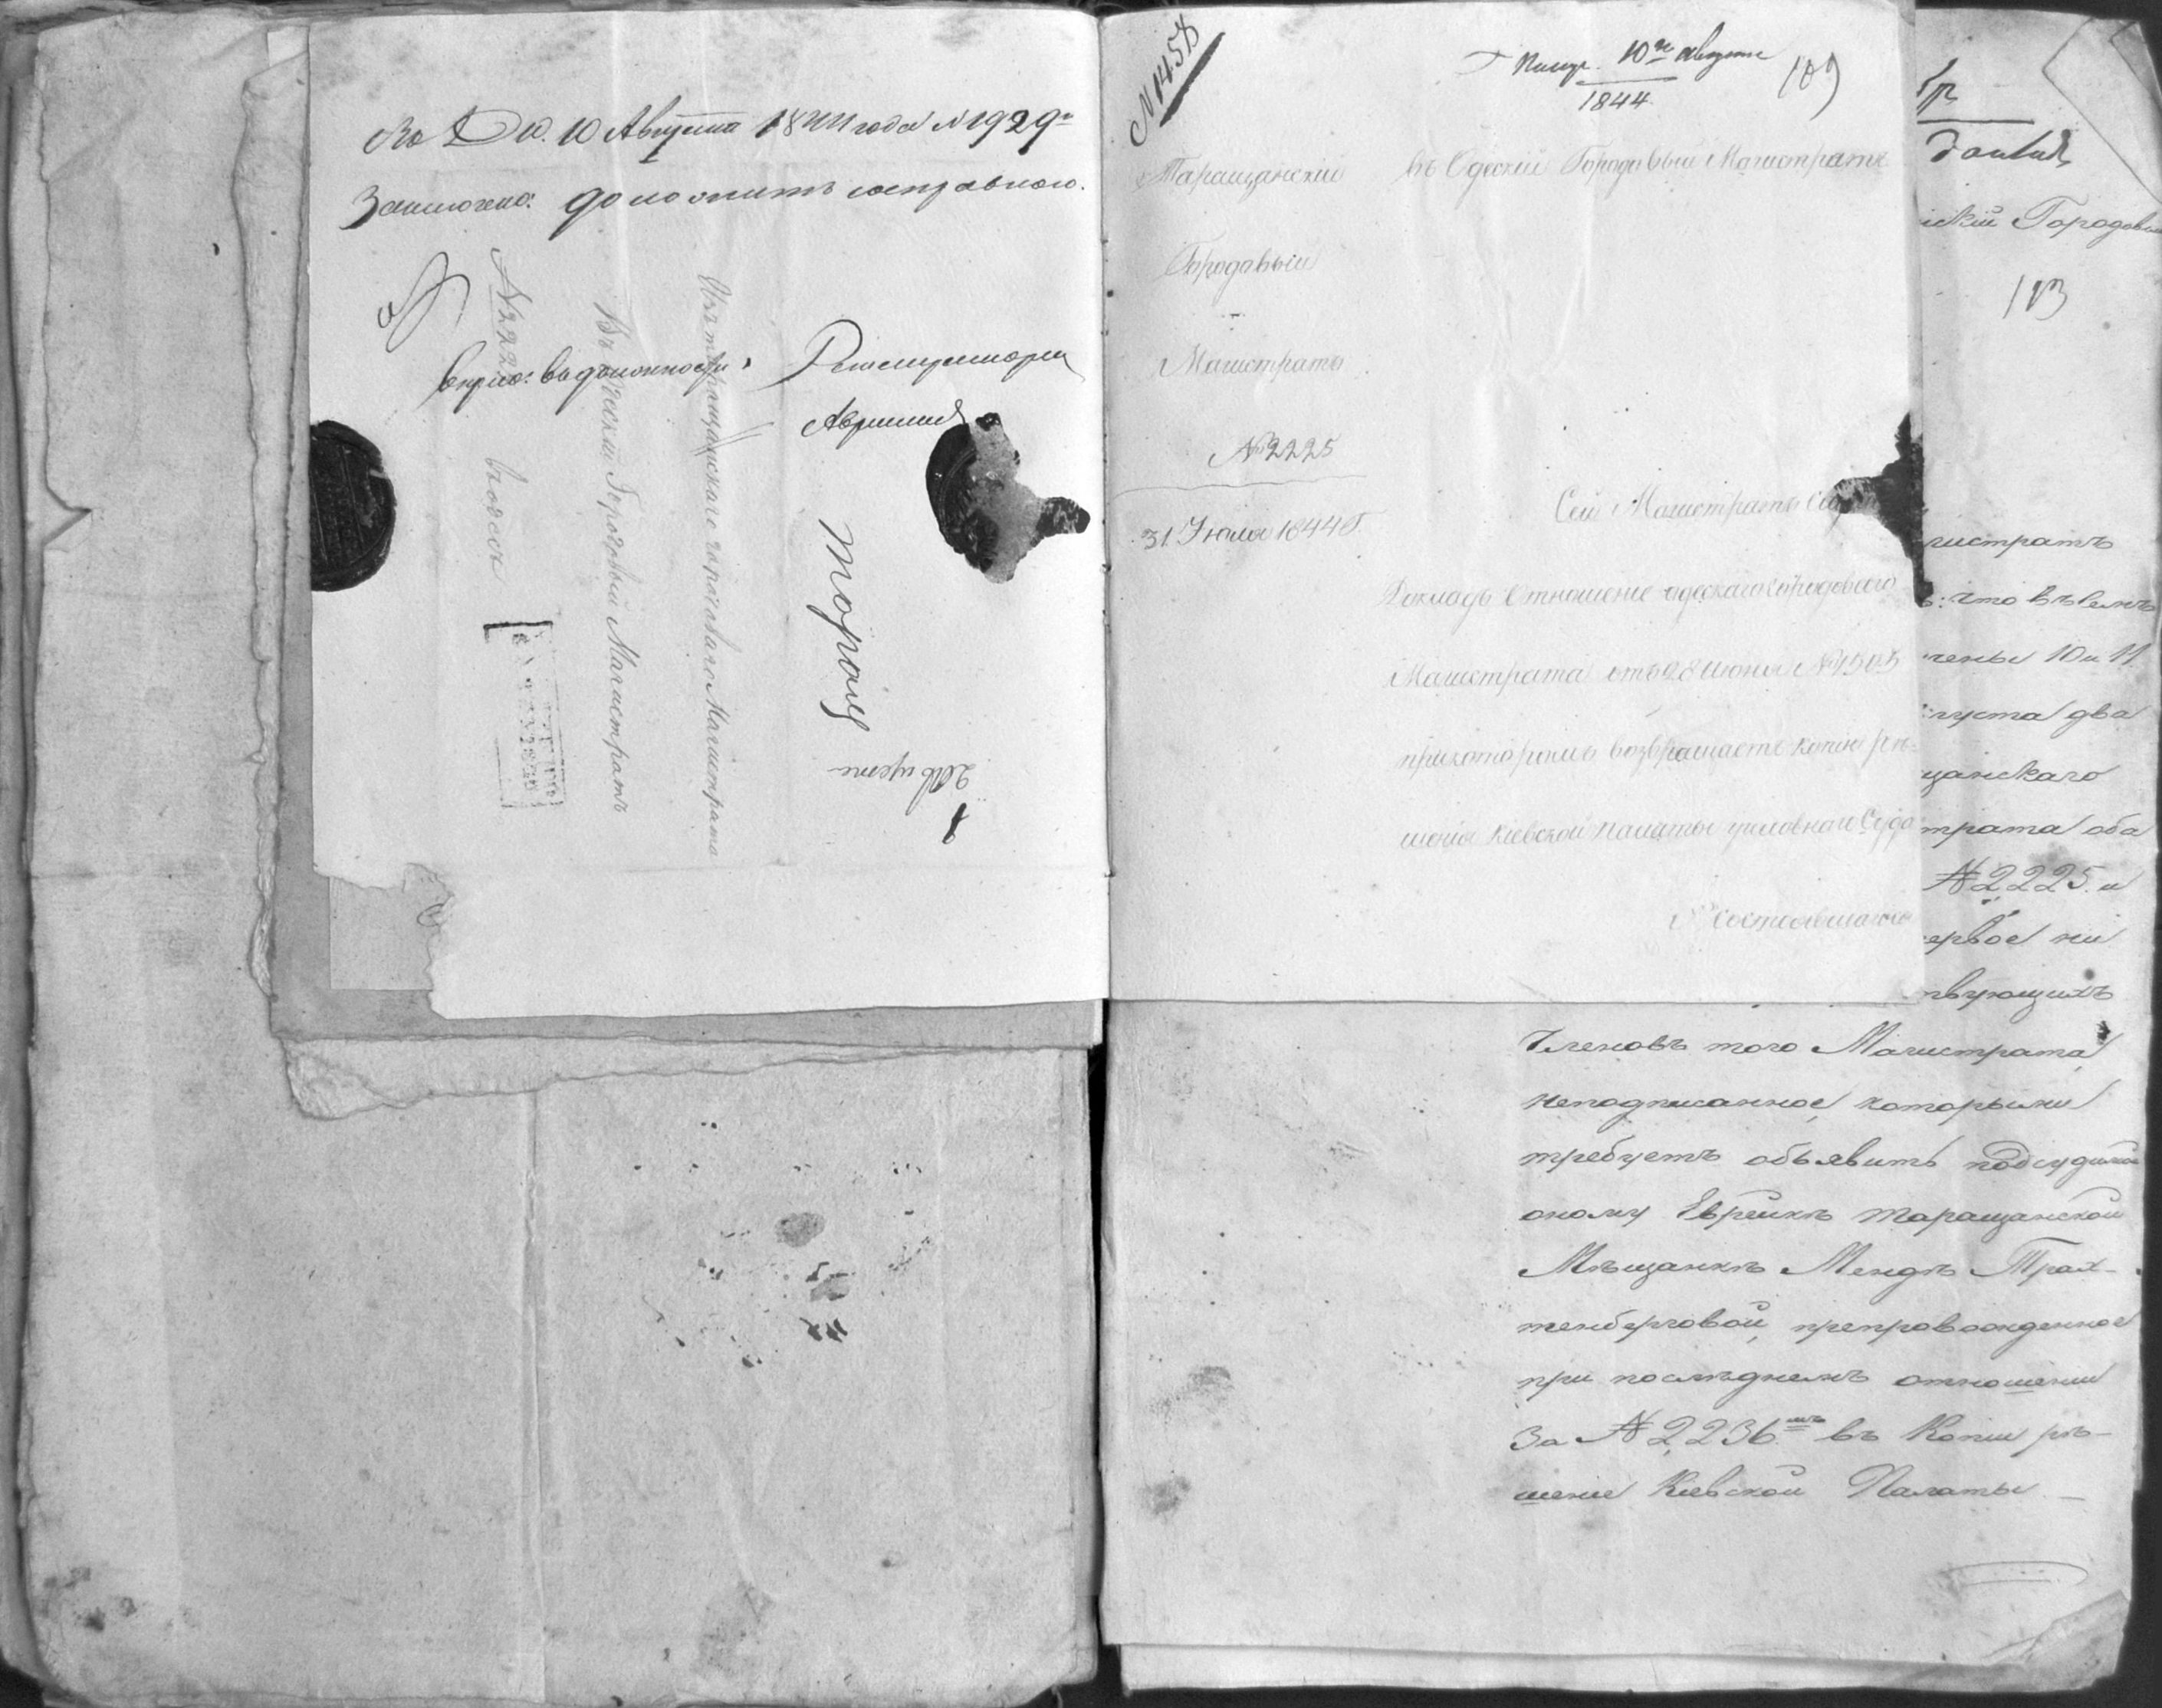 10 Августа 1844 года N 1929
Заключено: доложить
N 2225
въ одессѣ
Въ Одесскій Городовый Магистратъ
Изъ Таращанскаго городоваго Магистрата
Регистраторъ
N 1458
Получ. 10го августа
1844
109
Таращанскій
Городавый
Магистратъ
№ 2225
31 Июля 1844 г.
въ Одескій Городовый Магистратъ
Сей Магистратъ
Докладъ Отношение одескаго городоваго
Магистрата отъ 28 июня № 1505
прикоторомъ возвращаетъ копию рѣ-
шенія Кіевской Палаты уголовнаго Суда
состоявшагося
скій Городовый
113
гистратъ
что въ немъ
чены 10 и 11
густа два
щанскаго
трата оба
№ 2225. и
ервое ни
твующихъ
Членовъ того Магистрата,
неподписанное, которыми
требуетъ объявить подсудимой
оному Еврейкѣ таращанской
Мѣщанкѣ Мендѣ Трах-
тенберговой, препровожденное
при послѣднемъ отношеніи
за № 2236мъ въ Копіи рѣ-
шеніе Кіевской Палаты